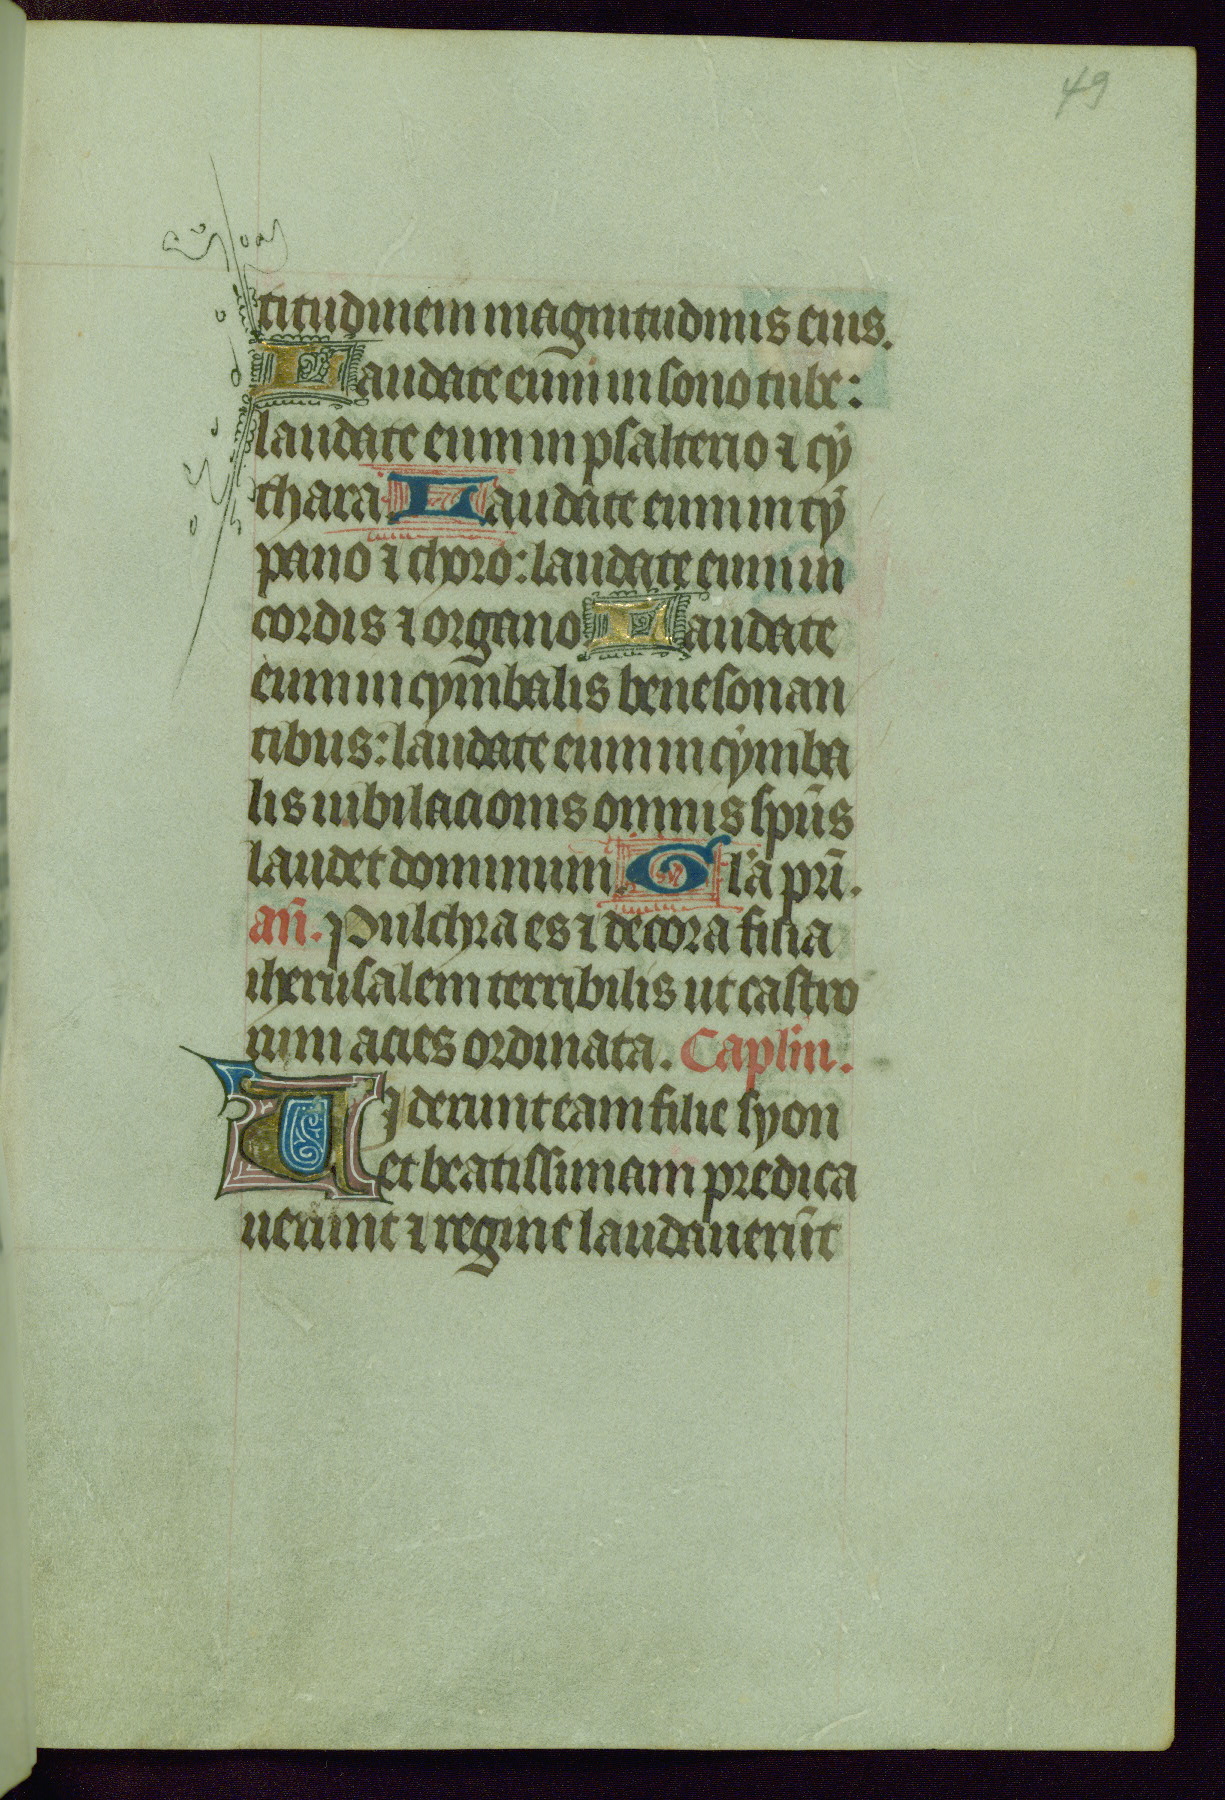 49
titudinem magnitudinis eius.
Laudate eum in sono tube:
laudate eum in psalterio ⁊ cy
thara Laudate eum in ty
pano ⁊ choro: laudate eum in
cordis ⁊ organo Laudate
eum in cymbalis bene sonan
tibus: laudate eum in cymba
lis iubilacionis omnis sp̄us
laudet dominum. Gl'a pr̄i.
an̄. Pulchra es ⁊ decora filia
iherusalem terribilis ut castro
rum acies ordinata. Caplm̄.
Uiderunt eam filie syon
et beatissimam predica
uerunt ⁊ regine laudauerūt